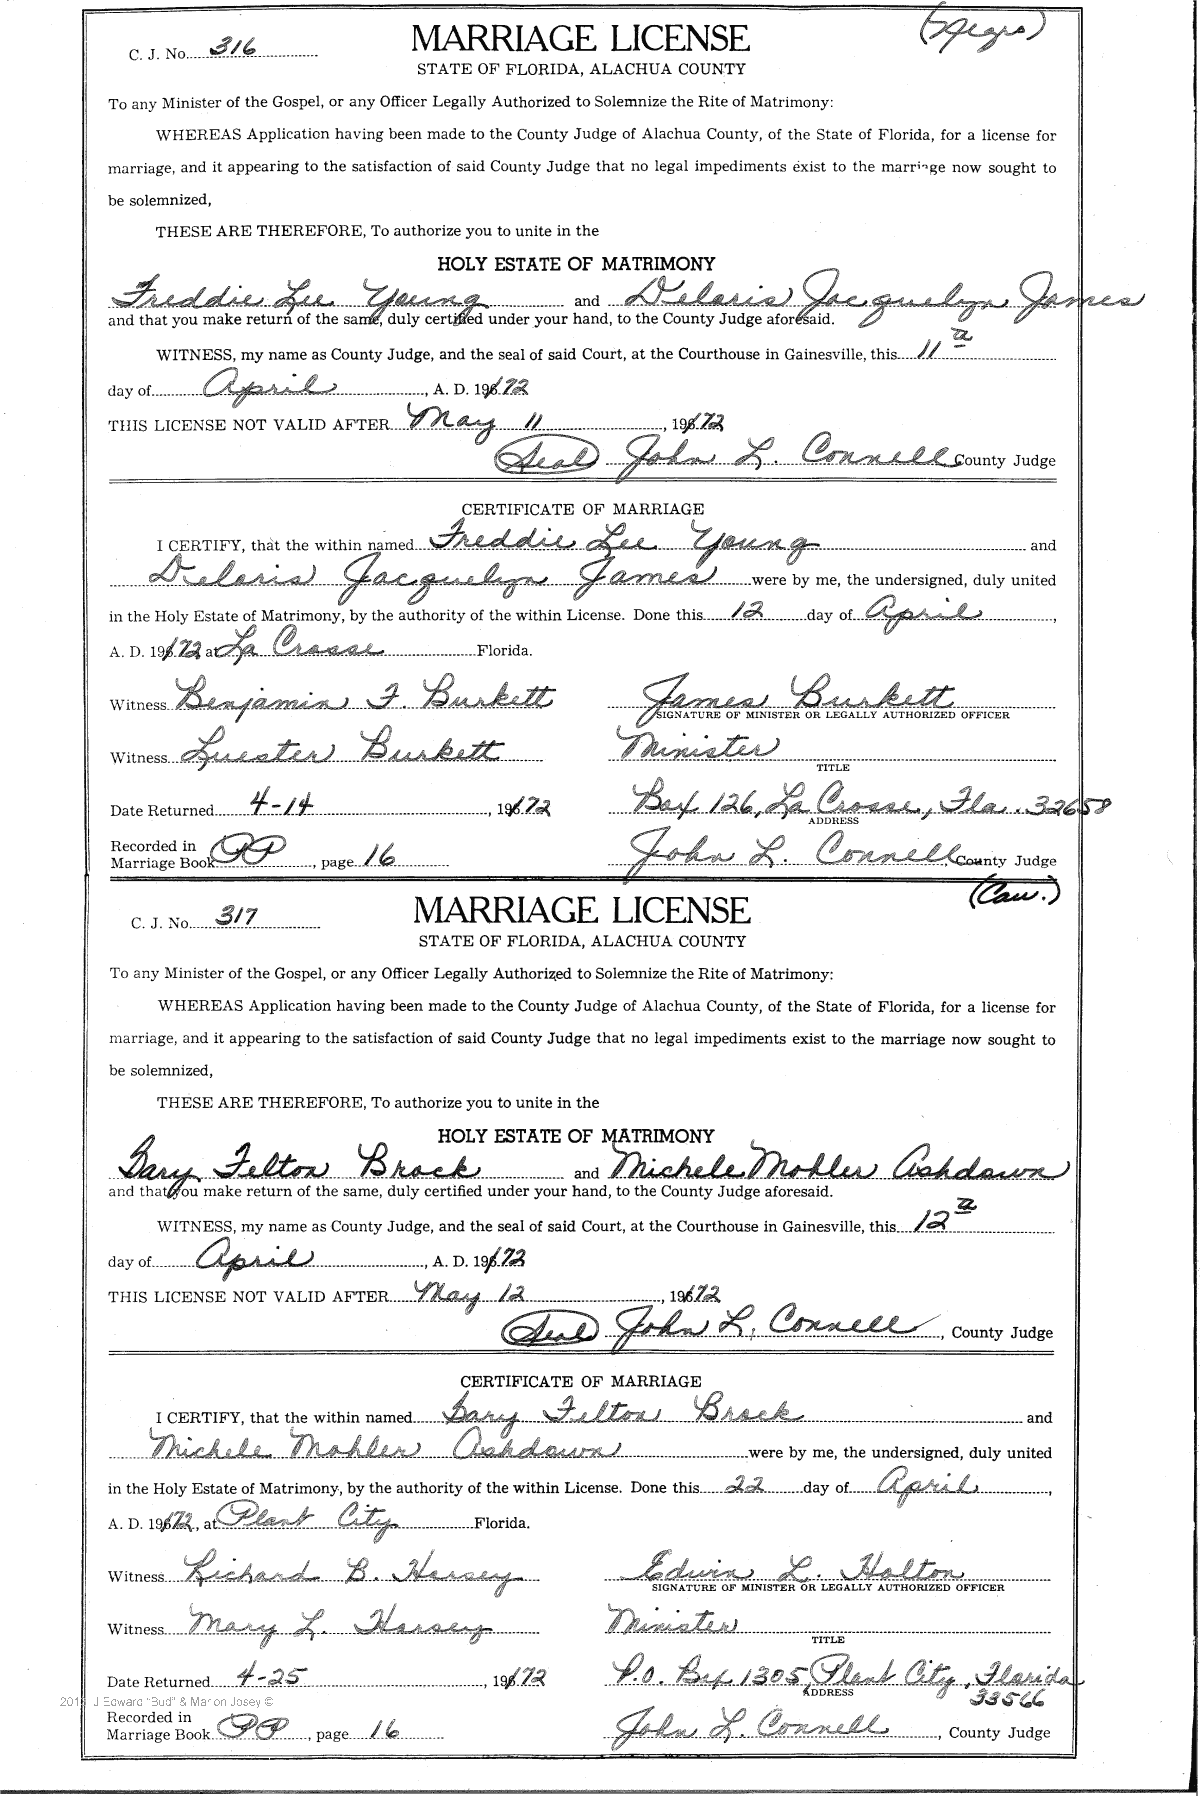 (Negro)
C. J. No. 316
MARRIAGE LICENSE
STATE OF FLORIDA, ALACHUA COUNTY
To any Minister of the Gospel, or any Officer Legally Authorized to Solemnize the Rite of Matrimony:
WHEREAS Application having been made to the County Judge of Alachua County, of the State of Florida, for a license for
marriage, and it appearing to the satisfaction of said County Judge that no legal impediments exist to the marriage now sought to
be solemnized,
THESE ARE THEREFORE, To authorize you to unite in the
HOLY ESTATE OF MATRIMONY
Freddie Lee Young and Delaris Jacquelyn James
and that you make return of the same, duly certified under your hand, to the County Judge aforesaid.
WITNESS, my name as County Judge, and the seal of said Court, at the Courthouse in Gainesville, this 11
day of April, A. D. 1972
THIS LICENSE NOT VALID AFTER May 11, 1972
(Seal) John L. Connell County Judge
CERTIFICATE OF MARRIAGE
I CERTIFY, that the within named Freddie Lee Young and
Delaris Jacquelyn James were by me, the undersigned, duly united
in the Holy Estate of Matrimony, by the authority of the within License. Done this 12 day of April,
A. D. 1972 at La Crosse Florida.
Witness Benjamin F. Burkett James Burkett
SIGNATURE OF MINISTER OR LEGALLY AUTHORIZED OFFICER
Witness Luester Burkett Minister
TITLE
Date Returned 4-14, 1972 Box 126, La Crosse, Fla. 32658
ADDRESS
Recorded in
Marriage Book PP, page 16 John L. Connell, County Judge
(Cau.)
C. J. No. 317
MARRIAGE LICENSE
STATE OF FLORIDA, ALACHUA COUNTY
To any Minister of the Gospel, or any Officer Legally Authorized to Solemnize the Rite of Matrimony:
WHEREAS Application having been made to the County Judge of Alachua County, of the State of Florida, for a license for
marriage, and it appearing to the satisfaction of said County Judge that no legal impediments exist to the marriage now sought to
be solemnized,
THESE ARE THEREFORE, To authorize you to unite in the
HOLY ESTATE OF MATRIMONY
Gary Felton Brock and Michele Mohler Ashdown
and that you make return of the same, duly certified under your hand, to the County Judge aforesaid.
WITNESS, my name as County Judge, and the seal of said Court, at the Courthouse in Gainesville, this 12
day of April, A. D. 1972
THIS LICENSE NOT VALID AFTER May 12, 1972
(Seal) John L. Connell, County Judge
CERTIFICATE OF MARRIAGE
I CERTIFY, that the within named Gary Felton Brock and
Michele Mohler Ashdown were by me, the undersigned, duly united
in the Holy Estate of Matrimony, by the authority of the within License. Done this 22 day of April,
A. D. 1972, at Plant City Florida.
Witness Richard B. Hersey Edwin L. Holton
SIGNATURE OF MINISTER OR LEGALLY AUTHORIZED OFFICER
Witness Mary L. Hersey Minister
TITLE
Date Returned 4-25 1972 P.O. Box 1305, Plant City, Florida
ADDRESS 33566
J Edward "Bud" & Marion Josey ©
Recorded in
Marriage Book PP, page 16 John L. Connell, County Judge